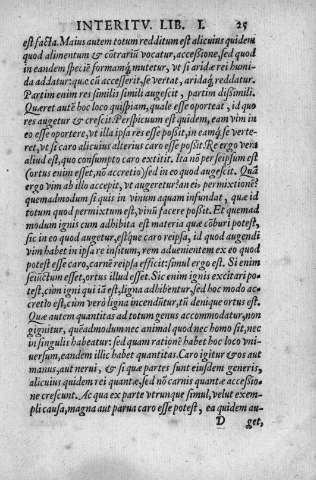 INTERITV. LIB. I. 25
est facta. Maius autem totum redditum est alicuius quidem
quod alimentum & cõtrariũ vocatur, accessiõe, sed quod
in eandem speciẽ formamq́; mutetur, vt si aridæ rei humi-
da addatur: quæ cũ accesserit, se vertat, aridaq́; reddatur.
Partim enim res similis simili augescit, partim dissimili.
Quæret autẽ hoc loco quispiam, quale esse oporteat, id quo
res augetur & crescit. Perspicuum est quidem, eam vim in
eo esse oportere, vt illa ipsa res esse possit, in eamq́; se verte-
ret, vt si caro alicuius alterius caro esse possit. Re ergo vera
aliud est, quo consumpto caro extitit. Ita nõ per seipsum est
(ortus enim esset, nõ accretio) sed in eo quod augescit. Quã
ergo vim ab illo accepit, vt augeretur? an eis permixtionẽ?
quemadmodum si quis in vinum aquam infundat, quæ id
totum quod permixtum est, vinũ facere possit. Et quemad
modum ignis cum adhibita est materia quæ cõburi potest,
sic in eo quod augetur, estq́ue caro reipsa, id quod augendi
vim habet in ipsa re insitum, rem aduenientem ex eo quod
potest esse caro, carnẽ reipsa efficit: simul ergo est. Si enim
seiũctum esset, ortus illud esset. Sic enim ignis excitari po-
test, cùm igni qui iã est, ligna adhibentur, sed hoc modo ac-
cretio est, cùm verò ligna incendũtur, tũ denique ortus est.
Quæ autem quantitas ad totum genus accommodatur, non
gignitur, quẽadmodum nec animal quod nec homo sit, nec
in singulis habeatur: sed quam rationẽ habet hoc loco vni-
uersum, eandem illic habet quantitas. Caro igitur & os aut
manus, aut nerui, & si quæ partes sunt eiusdem generis,
alicuius quidem rei quantæ, sed nõ carnis quantæ accessiõe
ne crescunt. Ac qua ex parte vtrunque simul, velut exem-
pli causa, magna aut parua caro esse potest, ea quidem au-
D get,